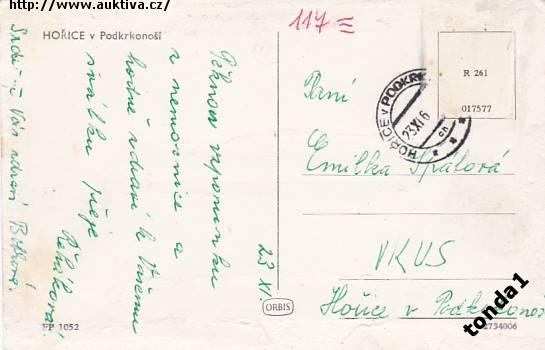 http://www.auktiva.cz/
HOŘICE v Podkrkonoší
117=
Pěknou vzpomínku
z nemocnice a
hodně zdraví k Vašemu
svátku přeje
Řeháková.
23 XI.
Srdečně Vás zdraví
R 261
017577
HOŘICE v PODKRK
23.XI.6
Paní
Emilka Špálová
VKUS
Hořice v Podkrkonoší
ORBIS
FP 1052
2734006
tonda1